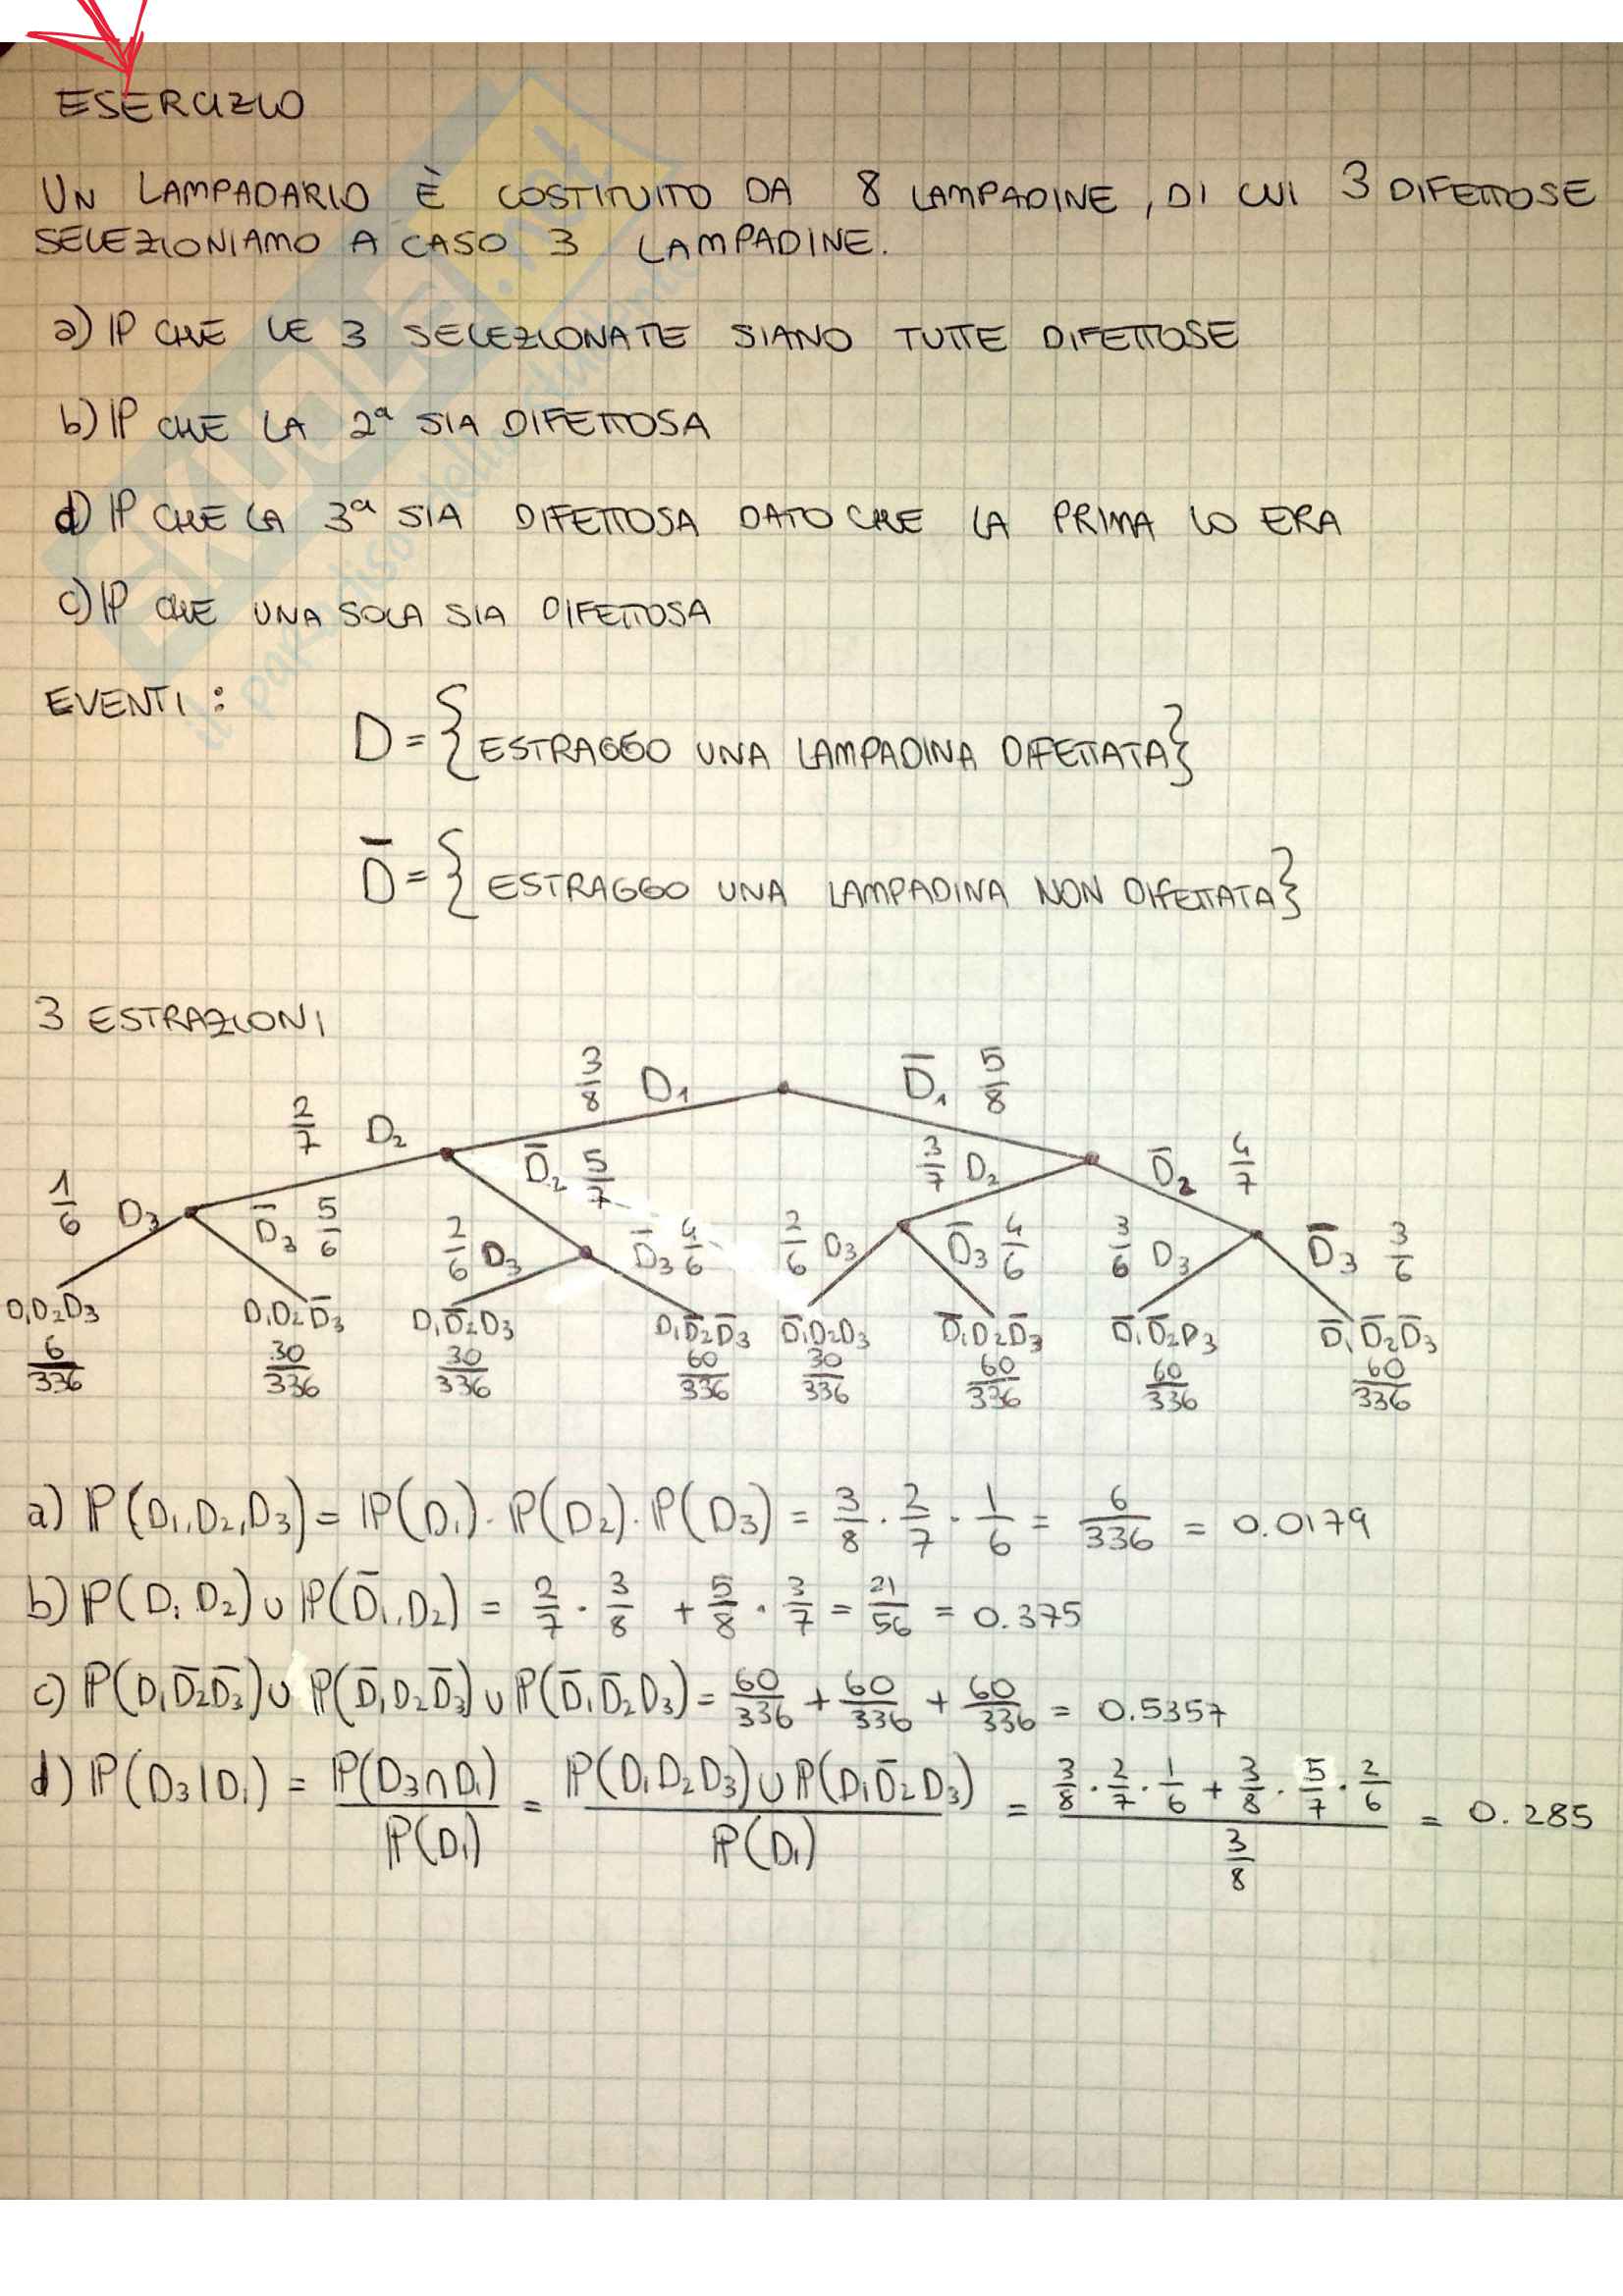 ESERCIZIO
UN LAMPADARIO È COSTITUITO DA 8 LAMPADINE, DI CUI 3 DIFETTOSE
SELEZIONIAMO A CASO 3 LAMPADINE.
a) ℙ CHE LE 3 SELEZIONATE SIANO TUTTE DIFETTOSE
b) ℙ CHE LA 2ª SIA DIFETTOSA
d) ℙ CHE LA 3ª SIA DIFETTOSA DATO CHE LA PRIMA LO ERA
c) ℙ CHE UNA SOLA SIA DIFETTOSA
EVENTI:
D = {ESTRAGGO UNA LAMPADINA DIFETTATA}
D̄ = {ESTRAGGO UNA LAMPADINA NON DIFETTATA}
3 ESTRAZIONI
3/8 D₁ D̄₁ 5/8
2/7 D₂ D̄₂ 5/7 3/7 D₂ D̄₂ 4/7
1/6 D₃ D̄₃ 5/6 2/6 D₃ D̄₃ 4/6 2/6 D₃ D̄₃ 4/6 3/6 D₃ D̄₃ 3/6
D₁D₂D₃ D₁D₂D̄₃ D₁D̄₂D₃ D₁D̄₂D̄₃ D̄₁D₂D₃ D̄₁D₂D̄₃ D̄₁D̄₂D₃ D̄₁D̄₂D̄₃
6/336 30/336 30/336 60/336 30/336 60/336 60/336 60/336
a) ℙ(D₁,D₂,D₃) = ℙ(D₁)·ℙ(D₂)·ℙ(D₃) = 3/8 · 2/7 · 1/6 = 6/336 = 0.0179
b) ℙ(D₁ D₂) ∪ ℙ(D̄₁,D₂) = 2/7 · 3/8 + 5/8 · 3/7 = 21/56 = 0.375
c) ℙ(D₁D̄₂D̄₃) ∪ ℙ(D̄₁D₂D̄₃) ∪ ℙ(D̄₁D̄₂D₃) = 60/336 + 60/336 + 60/336 = 0.5357
d) ℙ(D₃|D₁) = ℙ(D₃∩D₁)/ℙ(D₁) = ℙ(D₁D₂D₃) ∪ ℙ(D₁D̄₂D₃)/ℙ(D₁) = 3/8 · 2/7 · 1/6 + 3/8 · 5/7 · 2/6 / 3/8 = 0.285